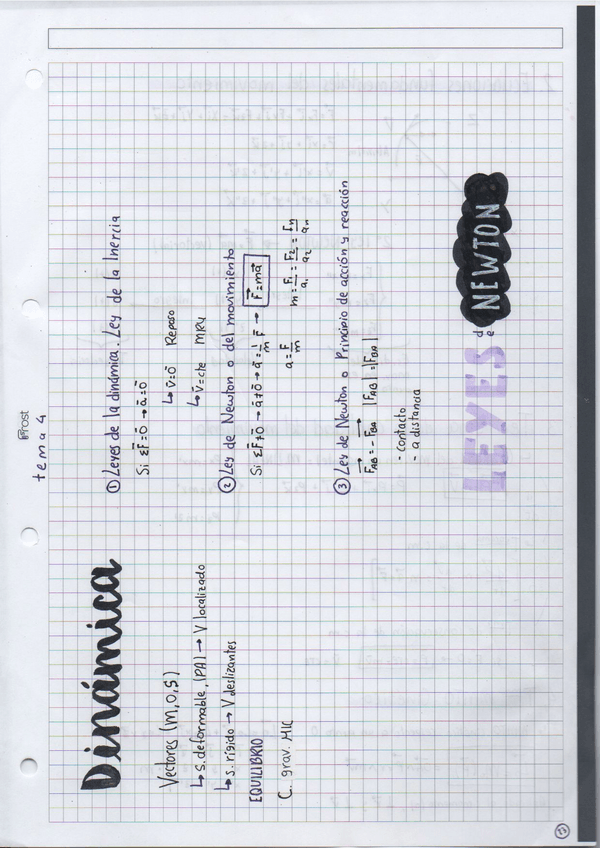 Frost
tema 4
Dinámica
Vectores (M, O, S)
↳ s. deformable, (PA) → V localizado
↳ s. rígido → V deslizantes
EQUILIBRIO
C. grav. MK
① Leyes de la dinámica. Ley de la Inercia
Si ΣF̄=0̄ → ā=0̄
↳ v̄=0̄ Reposo
↳ v̄=cte MRU
② Ley de Newton o del movimiento
Si ΣF̄≠0̄ → ā≠0̄ → ā=1/m F̄ → F⃗=ma⃗
a=F̄/m m=F₁/a₁=F₂/a₂=Fn/an
③ Ley de Newton o Principio de acción y reacción
F⃗AB = - F⃗BA |FAB|=|FBA|
- contacto
- a distancia
LEYES de NEWTON